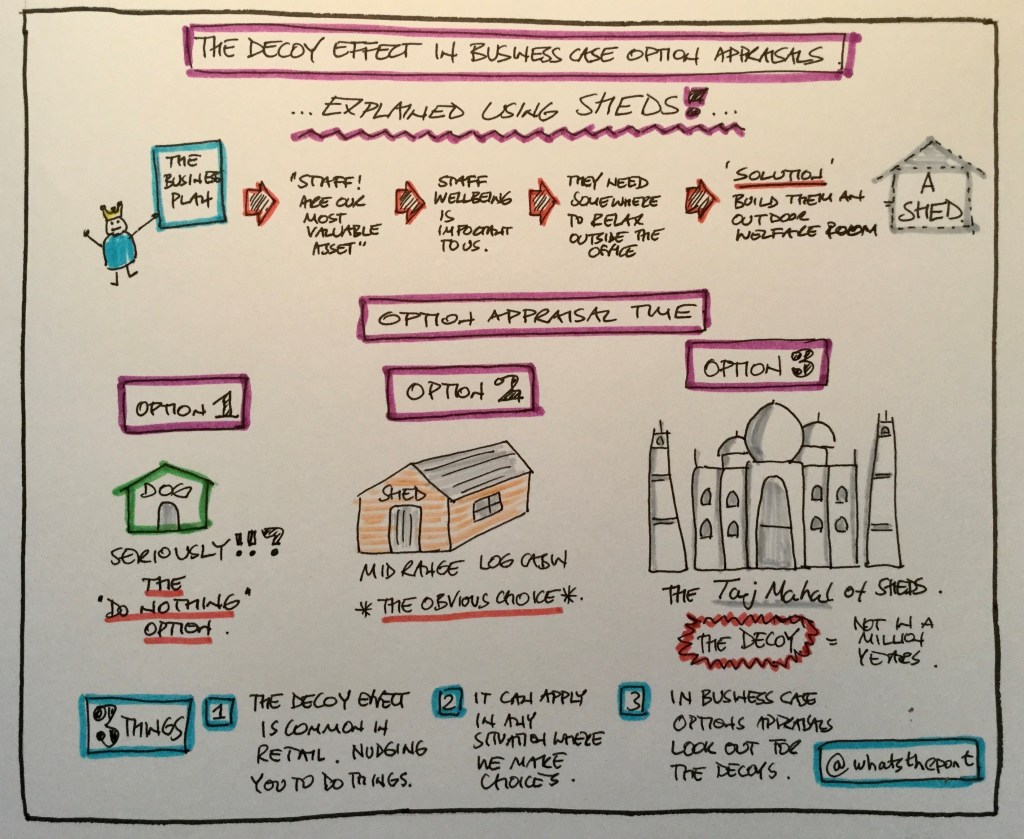 THE DECOY EFFECT IN BUSINESS CASE OPTION APPRAISALS
...EXPLAINED USING SHEDS!...
THE
BUSINESS
PLAN
"STAFF!
ARE OUR
MOST
VALUABLE
ASSET"
STAFF
WELLBEING
IS
IMPORTANT
TO US.
THEY NEED
SOMEWHERE
TO RELAX
OUTSIDE THE
OFFICE
'SOLUTION'
BUILD THEM AN
OUTDOOR
WELFARE ROOM
A
SHED
OPTION APPRAISAL TIME
OPTION 1
DOG
SERIOUSLY!!?
THE
"DO NOTHING"
OPTION.
OPTION 2
SHED
MID RANGE LOG CABIN
*THE OBVIOUS CHOICE*.
OPTION 3
THE Taj Mahal of SHEDS.
THE DECOY = NOT IN A
MILLION
YEARS.
3 THINGS
1 THE DECOY EFFECT
IS COMMON IN
RETAIL. NUDGING
YOU TO DO THINGS.
2 IT CAN APPLY
IN ANY
SITUATION WHERE
WE MAKE
CHOICES.
3 IN BUSINESS CASE
OPTIONS APPRAISALS
LOOK OUT FOR
THE DECOYS.
@whatsthepont